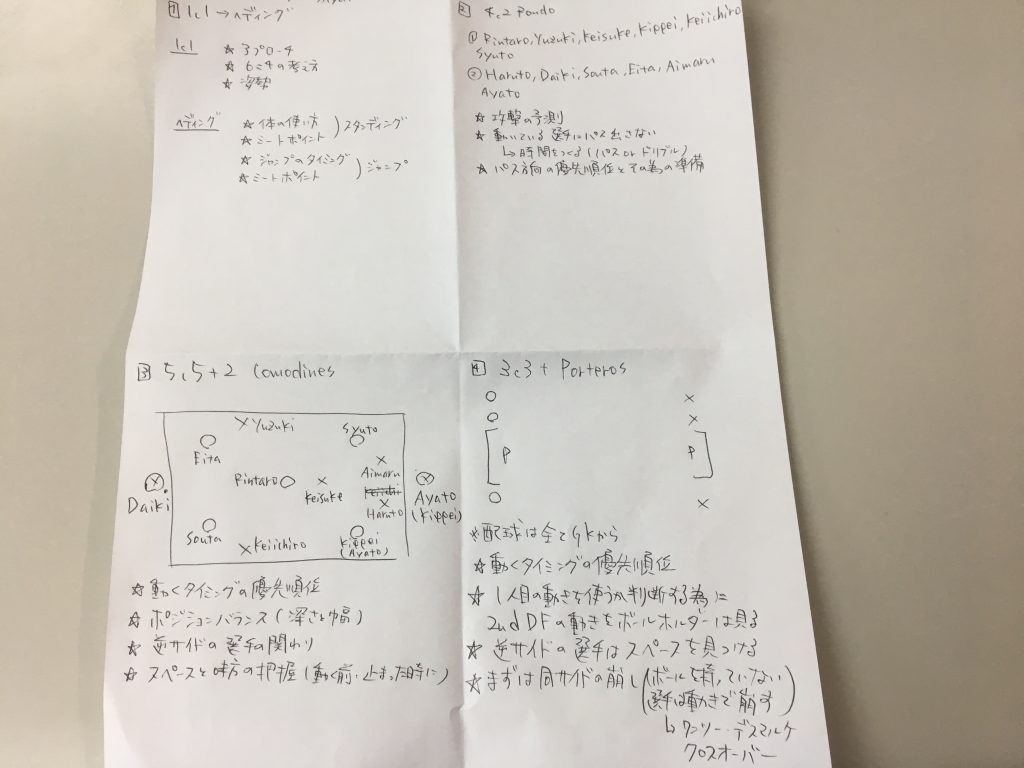 1 1c1 → ヘディング
1c1 ☆ アプローチ
☆ の考え方
☆ 姿勢
ヘディング ☆ 体の使い方
☆ ミートポイント
) スタンディング
☆ ジャンプのタイミング
☆ ミートポイント
) ジャンプ
2 4c2 Rondo
① Rintaro, Yuzuki, Keisuke, Kippei, Keiichiro
Syuto
② Haruto, Daiki, Souta, Eita, Aimaru
Ayato
☆ 攻撃の予測
☆ 動いている選手にパス出さない
↳ 時間をつくる (パス or ドリブル)
☆ パス方向の優先順位とその為の準備
3 5c5+2 Comodines
× Yuzuki
Syuto
Eita
×
Aimaru
Rintaro ○ ×
Keisuke
Keiichi
×
Haruto
Daiki
Ayato
(Kippei)
Souta
× Keiichiro
Kippei
(Ayato)
☆ 動くタイミングの優先順位
☆ ポジションバランス (深さと幅)
☆ 逆サイドの選手の関わり
☆ スペースと味方の把握 (動く前・止まった時に)
4 3c3 + Porteros
○ ×
○ ×
P P
○ ×
※配球は全てGKから
☆ 動くタイミングの優先順位
☆ 1人目の動きを使うか判断する為に
2nd DFの動きをボールホルダーは見る
☆ 逆サイドの選手はスペースを見つける
☆ まずは同サイドの崩し (ボールを持っていない
選手は動きで崩す)
↳ ワンツー・デスマルケ
クロスオーバー